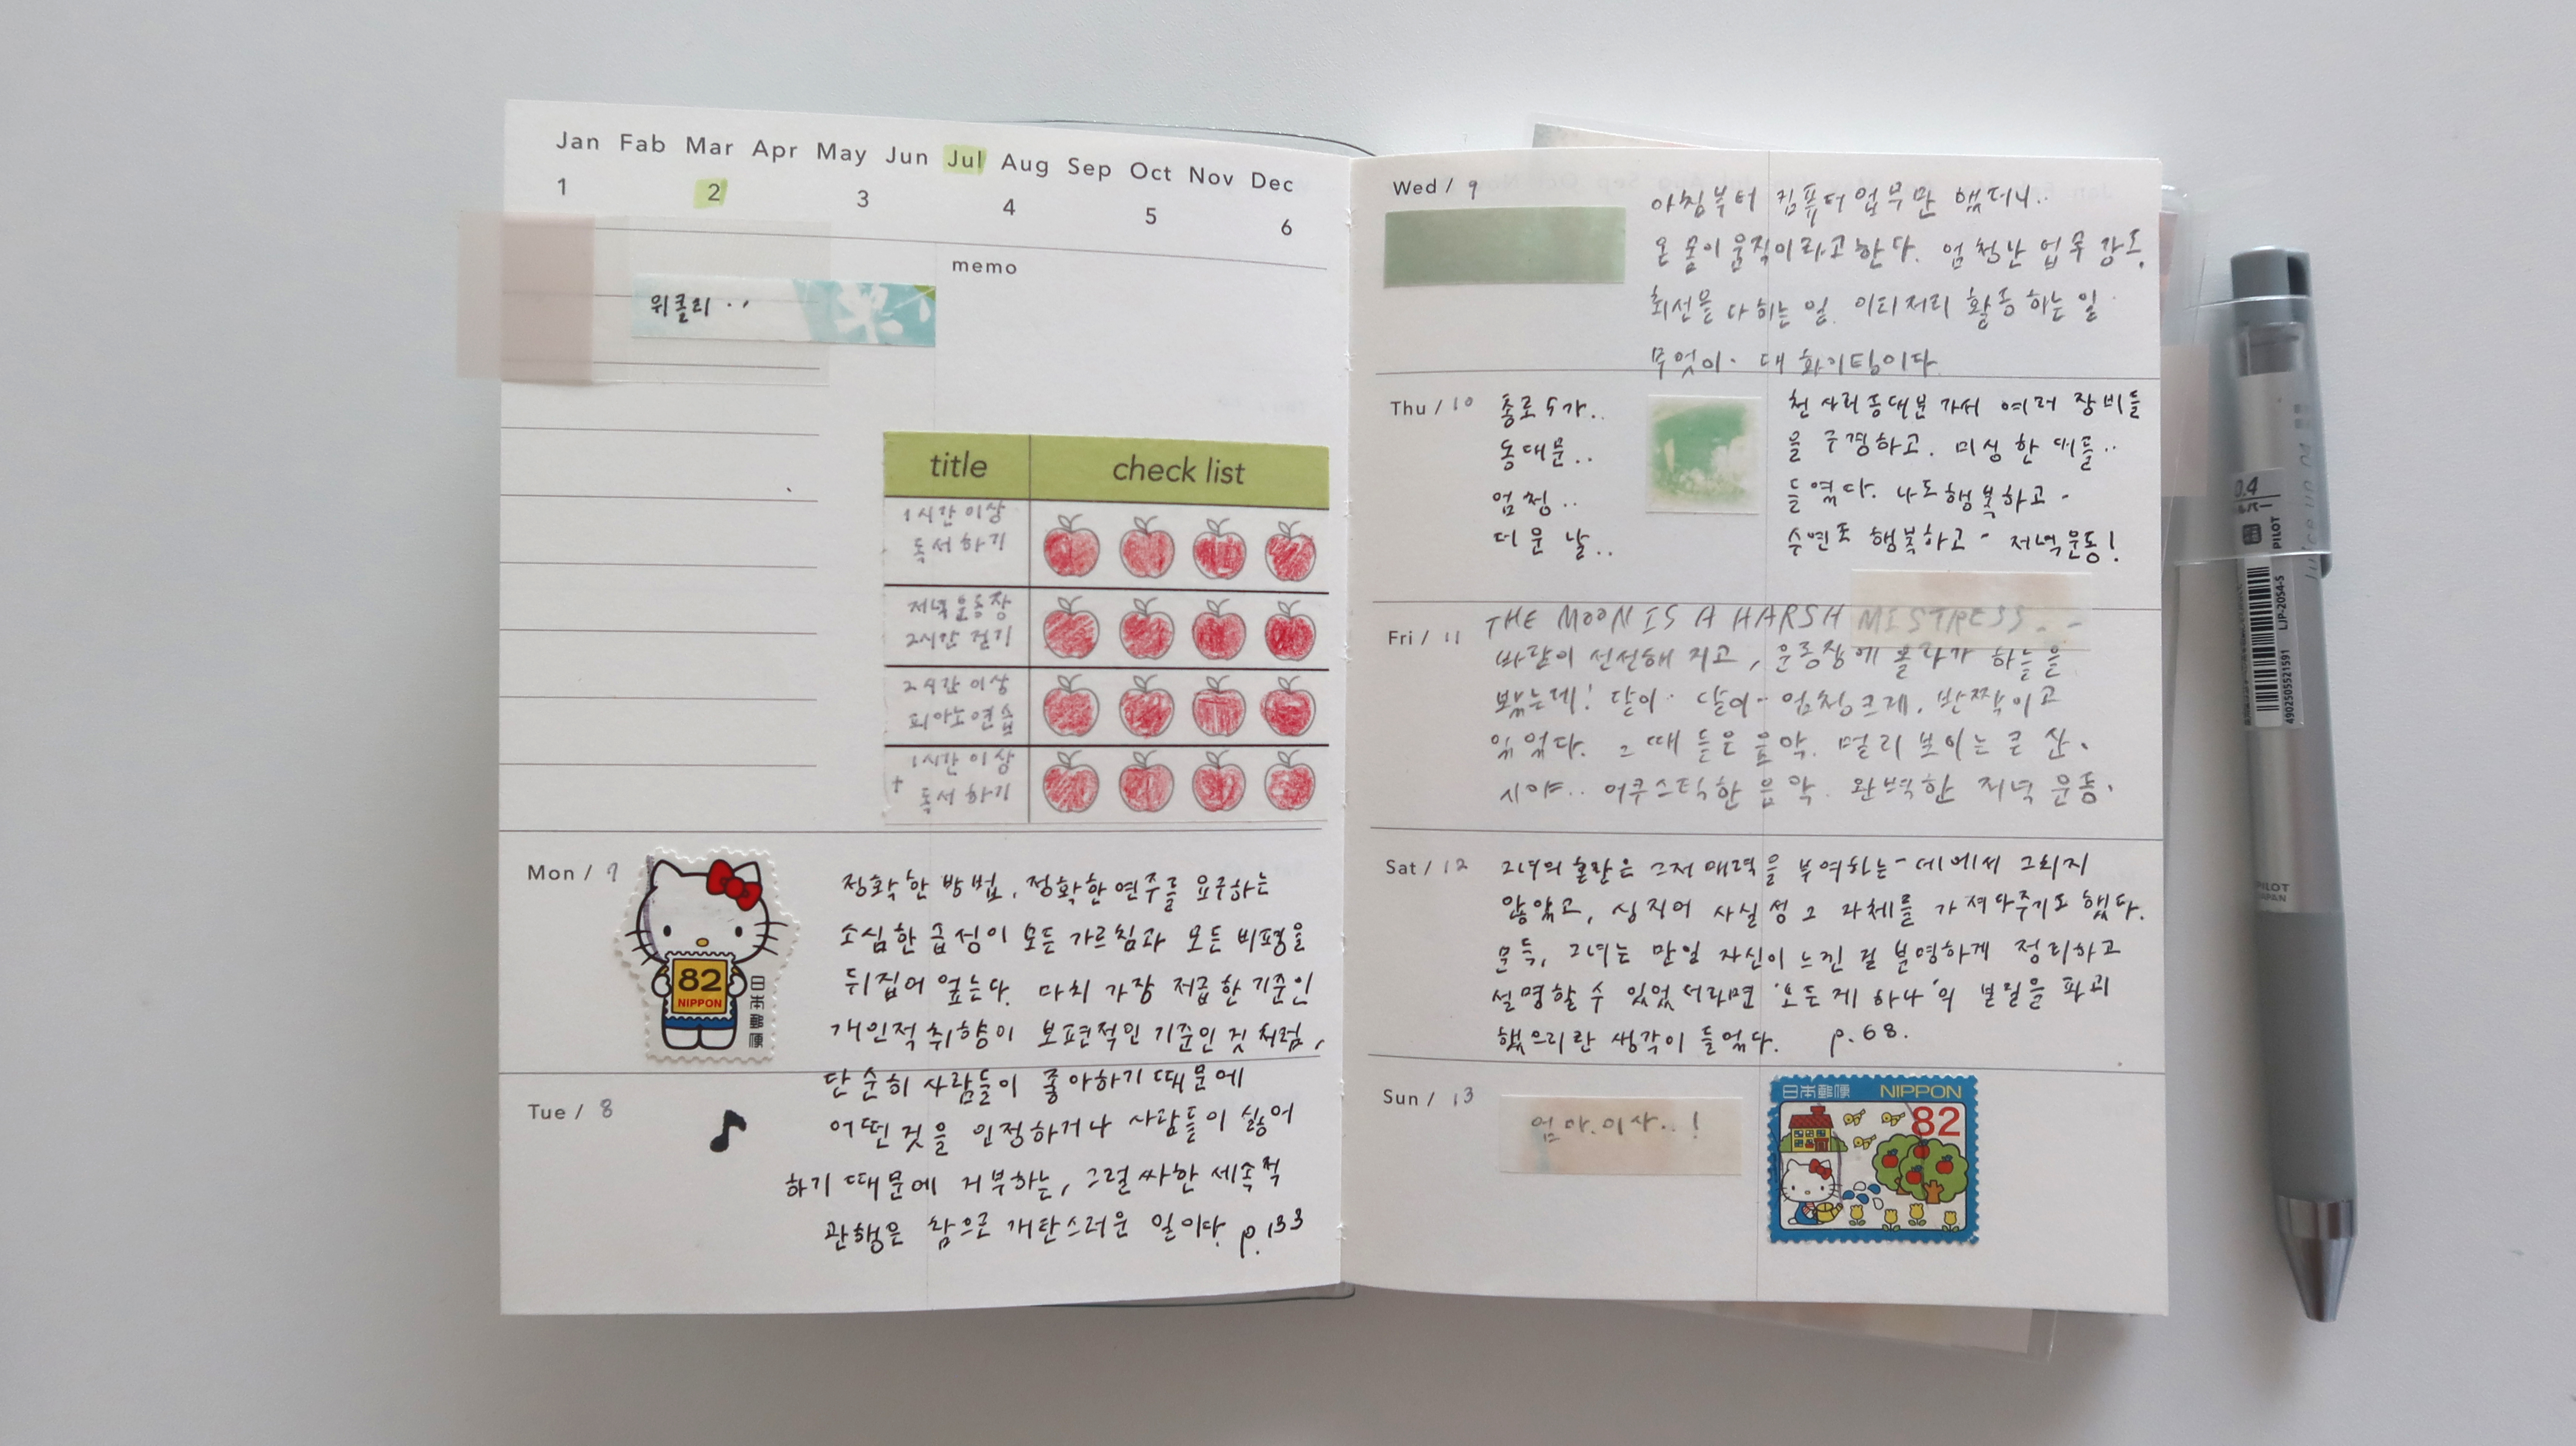 Jan Fab Mar Apr May Jun Jul Aug Sep Oct Nov Dec
1 2 3 4 5 6
memo
위클리 ..
title check list
1시간 이상
독서하기
저녁 운동장
2시간 걷기
2시간 이상
피아노연습
1시간 이상
+ 독서하기
Mon / 7
82
NIPPON
日本郵便
정확한 방법, 정확한 연주를 요구하는
소심한 급성이 모든 가르침과 모든 비평을
뒤집어 엎는다. 마치 가장 저급한 기준인
개인적 취향이 보편적인 기준인 것 처럼,
Tue / 8
단순히 사람들이 좋아하기 때문에
어떤 것을 인정하거나 사람들이 싫어
하기 때문에 거부하는, 그럴싸한 세속적
관행은 참으로 개탄스러운 일이다. p.133
Wed / 9
아침부터 컴퓨터 업무만 했더니..
온 몸이 움직이라고 한다. 엄청난 업무 강도.
최선을 다하는 일. 이리저리 활동하는 일
무엇이. 대 화이팅이다.
Thu / 10
종로5가..
동대문..
엄청..
더운 날..
동대문 가서 여러 장비들
을 구경하고.
들었다. 나도 행복하고 -
행복하고 - 저녁운동!
Fri / 11
THE MOON IS A HARSH MISTRESS..
바람이 선선해 지고, 운동장에 올라가 하늘을
봤는데! 달이.. 달이.. 엄청 크레. 반짝이고
있었다. 그 때 들은 음악. 멀리 보이는 큰 산.
시야.. 어쿠스틱한 음악. 완벽한 저녁 운동.
Sat / 12
그녀의 혼란은 그저 매력을 부여하는 - 데에서 그치지
않았고, 심지어 사실성 그 자체를 가져다주기도 했다.
문득, 그녀는 만일 자신이 느낀 걸 분명하게 정리하고
설명할 수 있었더라면 '모든 게 하나'의 본질을 파괴
했으리란 생각이 들었다. p.68.
Sun / 13
엄마.이사..!
日本郵便 NIPPON
82
0.4
PILOT
LJP-20S4-S
4902505521591
PILOT
JAPAN